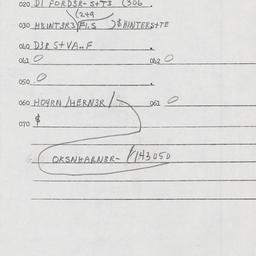 020 DI FORD3R-S+T3 (306
(249
030 H8INT3R3/FI.S )$HINTERS+TE
040 D3R S+VA..F .
041 0 042 0
050 0 .
060 HO4RN/HERN3R/ 061 0
070 $
OKSNHARN8R- /143050